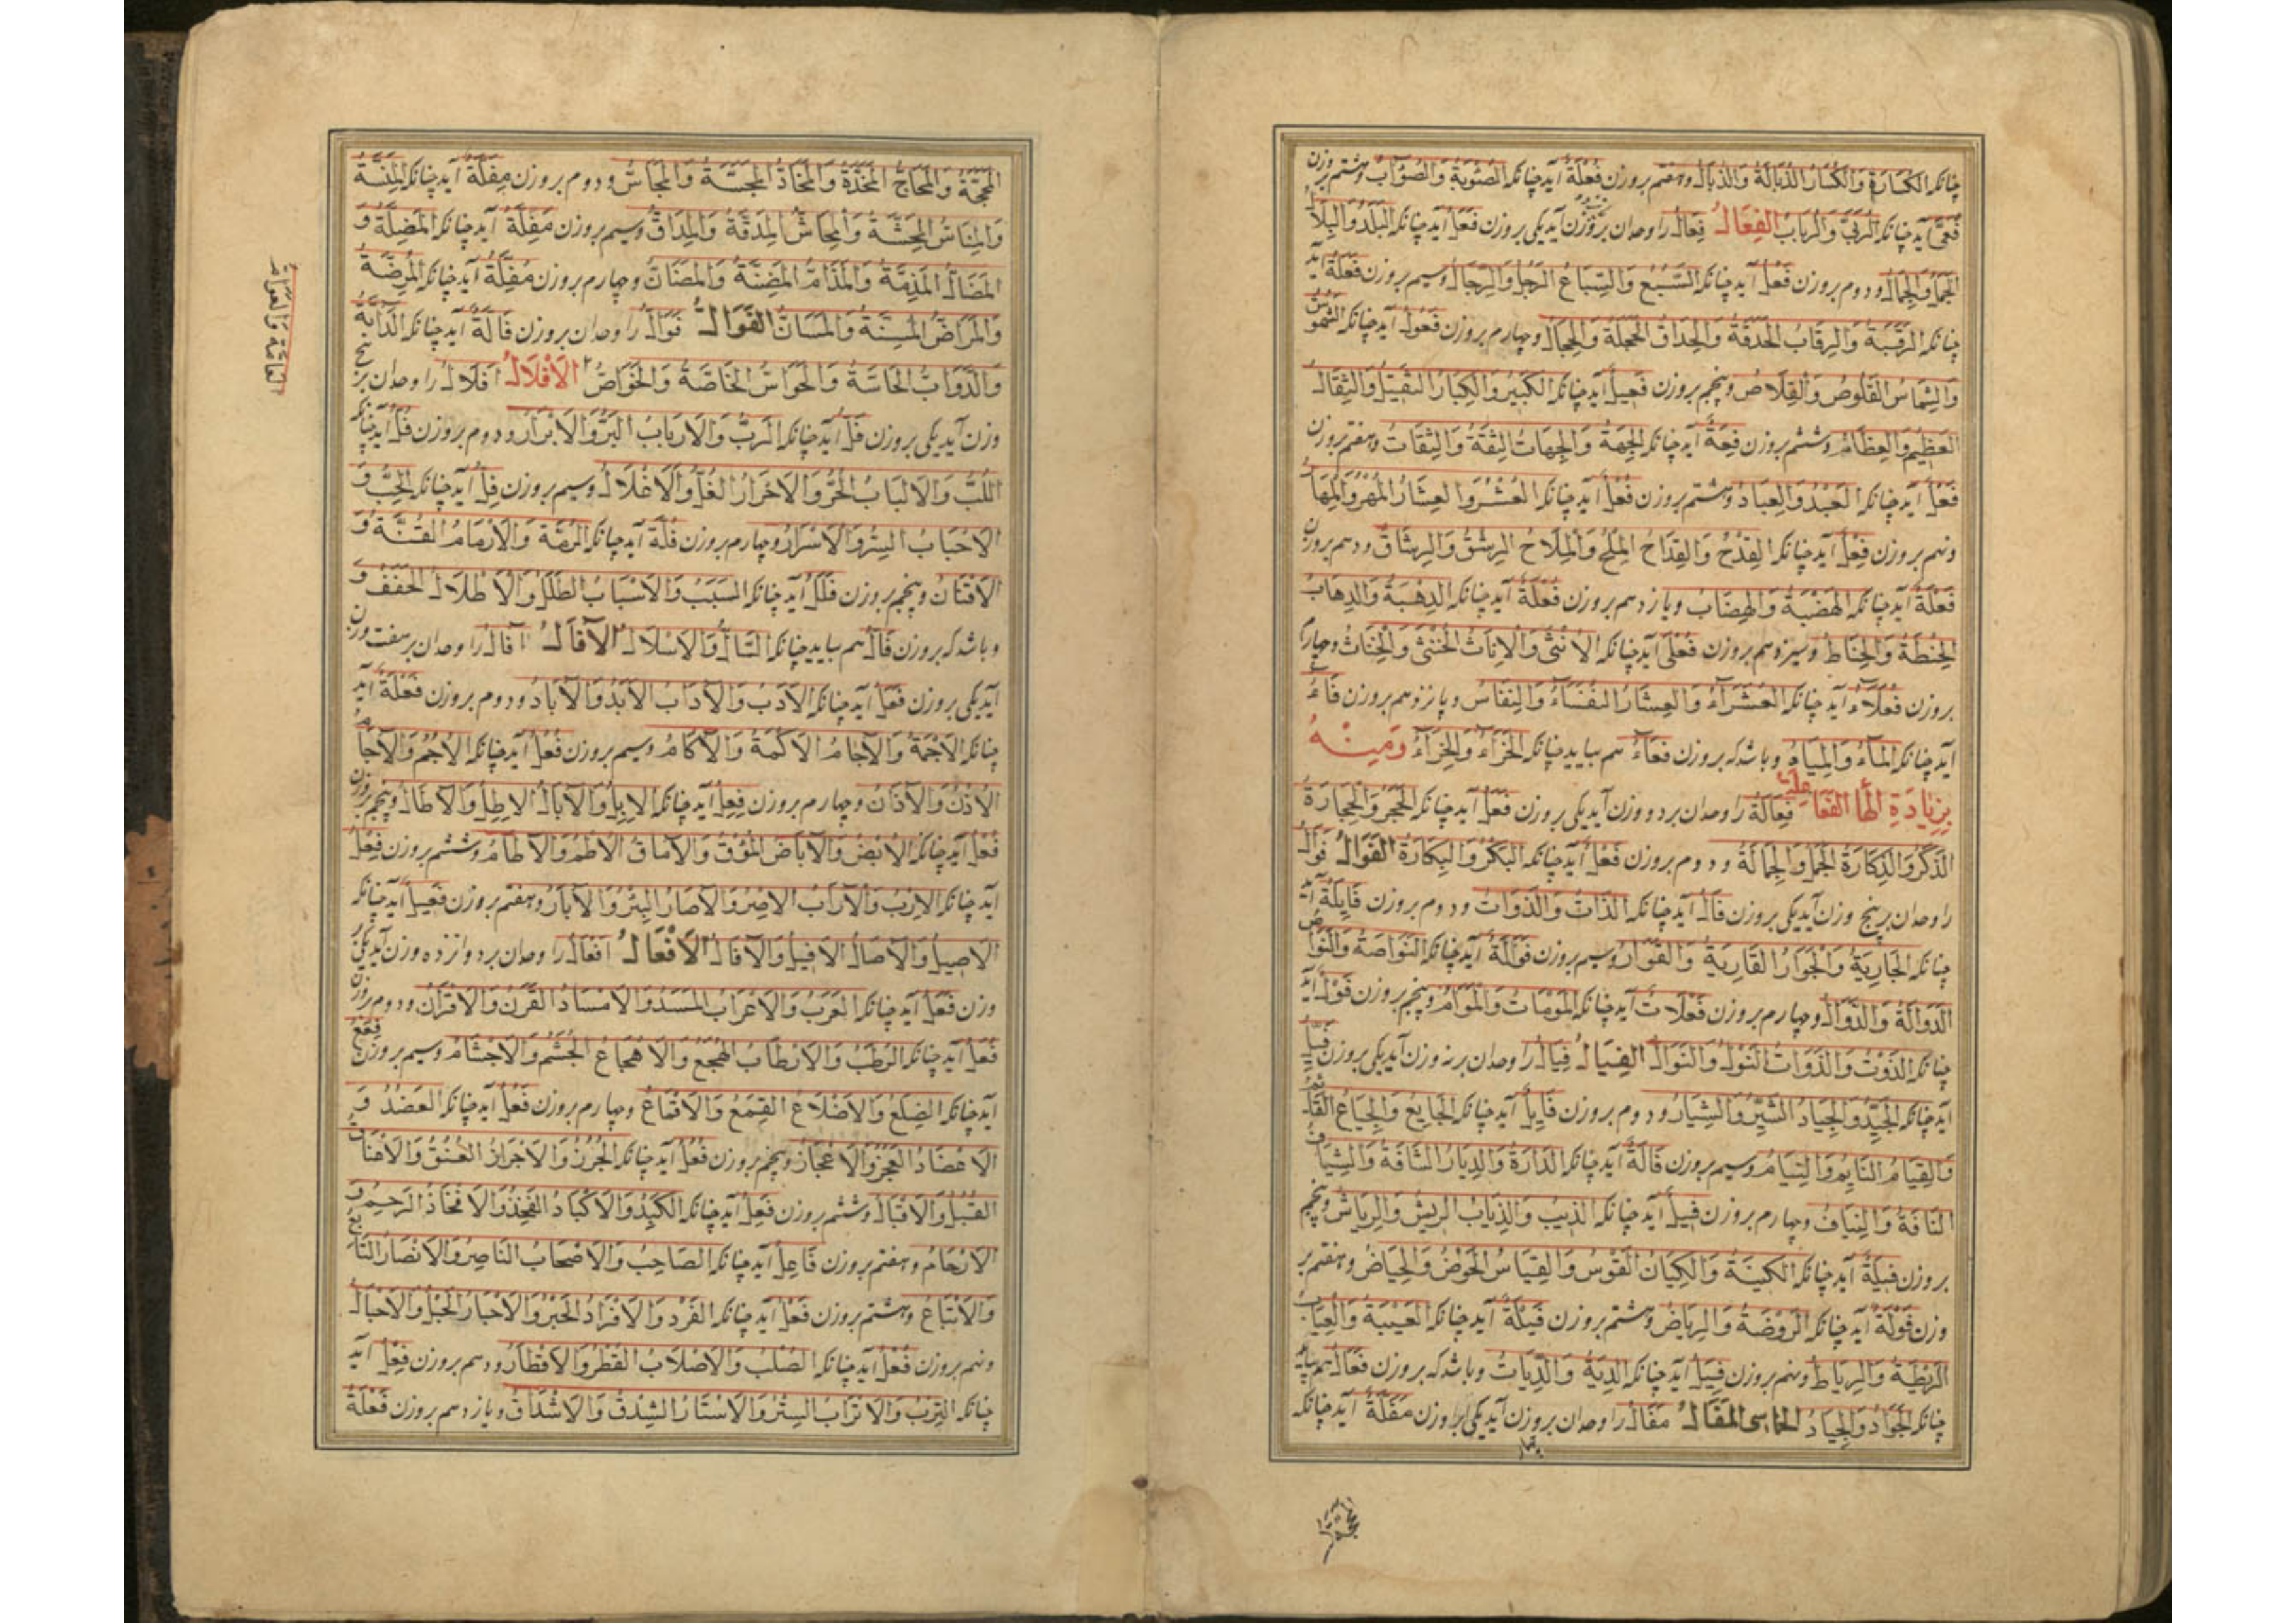 چنانکه الکسارة والکسار الذبالة والذبال وهفتم بروزن فعلة آید چنانکه الصئوبة والصؤاب وهشتم بروزن
فعی آید چنانکه الربی والرباب الفعال فعال را وحدان بر وزن آید یکی بروزن فعل آید چنانکه البلد والبلاد
الجمل والجمال ودوم بروزن فعل آید چنانکه السبع والسباع الرجل والرجال وسیم بروزن فعلة آید
چنانکه الرقبة والرقاب الحدقة والحداق الحجلة والحجال وچهارم بروزن فعول آید چنانکه الشموس
والشماس القلوص والقلاص وپنجم بروزن فعیل آید چنانکه الکبیر والکبار الثقیل والثقال
العظیم والعظام وششم بروزن فعة آید چنانکه الجهة والجهات الثقة والثقات وهفتم بروزن
فعل آید چنانکه العبد والعباد وهشتم بروزن فعل آید چنانکه العشر والعشار المهر والمهار
ونهم بروزن فعل آید چنانکه القدح والقداح الملح والملاح الرشق والرشاق ودهم بروزن
فعلة آید چنانکه الهضبة والهضاب ویازدهم بروزن فعلة آید چنانکه الدهبة والدهاب
الحنطة والحناط وسیزدهم بروزن فعلی آید چنانکه الانثی والاناث الخنثی والخناث وچهاردهم
بروزن فعلاء آید چنانکه العشراء والعشار النفساء والنفاس وپانزدهم بروزن فاع
آید چنانکه الماء والمیاه وباشد که بروزن فعاء هم بیاید چنانکه الخراء والخراء ومنه
بزیادة الها الفعالة فعالة را وحدان بر دو وزن آید یکی بروزن فعل آید چنانکه الحجر والحجارة
الذکر والذکارة الجمل والجمالة ودوم بروزن فعل آید چنانکه البکر والبکارة الفوال فوال
را وحدان بر پنج وزن آید یکی بروزن فال آید چنانکه الذات والذوات ودوم بروزن فایلة آید
چنانکه الجاریة والجوار القاریة والقوار وسیم بروزن فوالة آید چنانکه النواصة والنواص
الدوالة والدوال وچهارم بروزن فعلات آید چنانکه المومات والموام وپنجم بروزن فول آید
چنانکه الذوت والذوات النول والنوال الفیال فیال را وحدان بر نه وزن آید یکی بروزن فیل
آید چنانکه الجید والجیاد الشیر والشیار ودوم بروزن فایل آید چنانکه الجایع والجیاع القائم
والقیام النایم والنیام وسیم بروزن فالة آید چنانکه الدارة والدیار الشافة والشیاف
النافة والنیاف وچهارم بروزن فیل آید چنانکه الذیب والذیاب الریش والریاش وپنجم
بروزن فیلة آید چنانکه الکینة والکیان القوس والقیاس الحوض والحیاض وهفتم بر
وزن فولة آید چنانکه الروضة والریاض وهشتم بروزن فیلة آید چنانکه العیبة والعیاب
الریطة والریاط ونهم بروزن فیل آید چنانکه الدیة والدیات وباشد که بروزن فعال هم بیاید
چنانکه الجواد والجیاد الخماسی المفال مفال را وحدان بر وزن آید یکی بروزن مفلة آید چنانکه
المحجة والمحاج المخدة والمخاد المجسة والمجاس ودوم بروزن مفلة آید چنانکه المنسة
والمناس المحشة والمحاش المدقة والمداق وسیم بروزن مفلة آید چنانکه المضلة و
المضال المذمة والمذام المضنة والمضان وچهارم بروزن مفلة آید چنانکه المرضة
والمراض المسنة والمسان الفوال فوال را وحدان بروزن فالة آید چنانکه الدابة
والدواب الحاسة والحواس الخاصة والخواص الافلال افلال را وحدان بر پنج
وزن آید یکی بروزن فل آید چنانکه الرب والارباب البر والابرار ودوم بروزن فل آید چنانکه
اللب والالباب الحر والاحرار الغل والاغلال وسیم بروزن فل آید چنانکه الحب و
الاحباب السر والاسرار وچهارم بروزن فلة آید چنانکه الرمة والارمام القنة و
الاقنان وپنجم بروزن فلل آید چنانکه السبب والاسباب الطلل والاطلال الحفف و
وباشد که بروزن فال هم بیاید چنانکه السال والاسلال الآفال آفال را وحدان بر هفت وزن
آید یکی بروزن فعل آید چنانکه الادب والآداب الابد والآباد ودوم بروزن فعلة آید
چنانکه الاجمة والآجام الاکمة والآکام وسیم بروزن فعل آید چنانکه الاجم والآجام
الاذن والآذان وچهارم بروزن فعل آید چنانکه الابل والآبال الاطل والآطال وپنجم بروزن
فعل آید چنانکه الابض والآباض المؤق والآماق الاطم والآطام وششم بروزن فعل
آید چنانکه الارب والآراب الاصر والآصار البئر والآبار وهفتم بروزن فعیل آید چنانکه
الاصیل والآصال الافیل والآفال الافعال افعال را وحدان بر دوازده وزن آید یکی بر
وزن فعل آید چنانکه العرب والاعراب المسد والامساد القرن والاقران ودوم بروزن
فعل آید چنانکه الرطب والارطاب الهجع والاهجاع الجشم والاجشام وسیم بروزن فعل
آید چنانکه الضلع والاضلاع القمع والاقماع وچهارم بروزن فعل آید چنانکه العضد و
الاعضاد العجز والاعجاز وپنجم بروزن فعل آید چنانکه الجرز والاجراز العنق والاعناق
القبل والاقبال وششم بروزن فعل آید چنانکه الکبد والاکباد الفخذ والافخاذ الرحم و
الارحام وهفتم بروزن فاعل آید چنانکه الصاحب والاصحاب الناصر والانصار التابع
والاتباع وهشتم بروزن فعل آید چنانکه الفرد والافراد الحبر والاحبار الحبل والاحبال
ونهم بروزن فعل آید چنانکه الصلب والاصلاب القطر والاقطار ودهم بروزن فعل آید
چنانکه الترب والاتراب الستر والاستار الشدق والاشداق ویازدهم بروزن فعلة
العامة والعوام